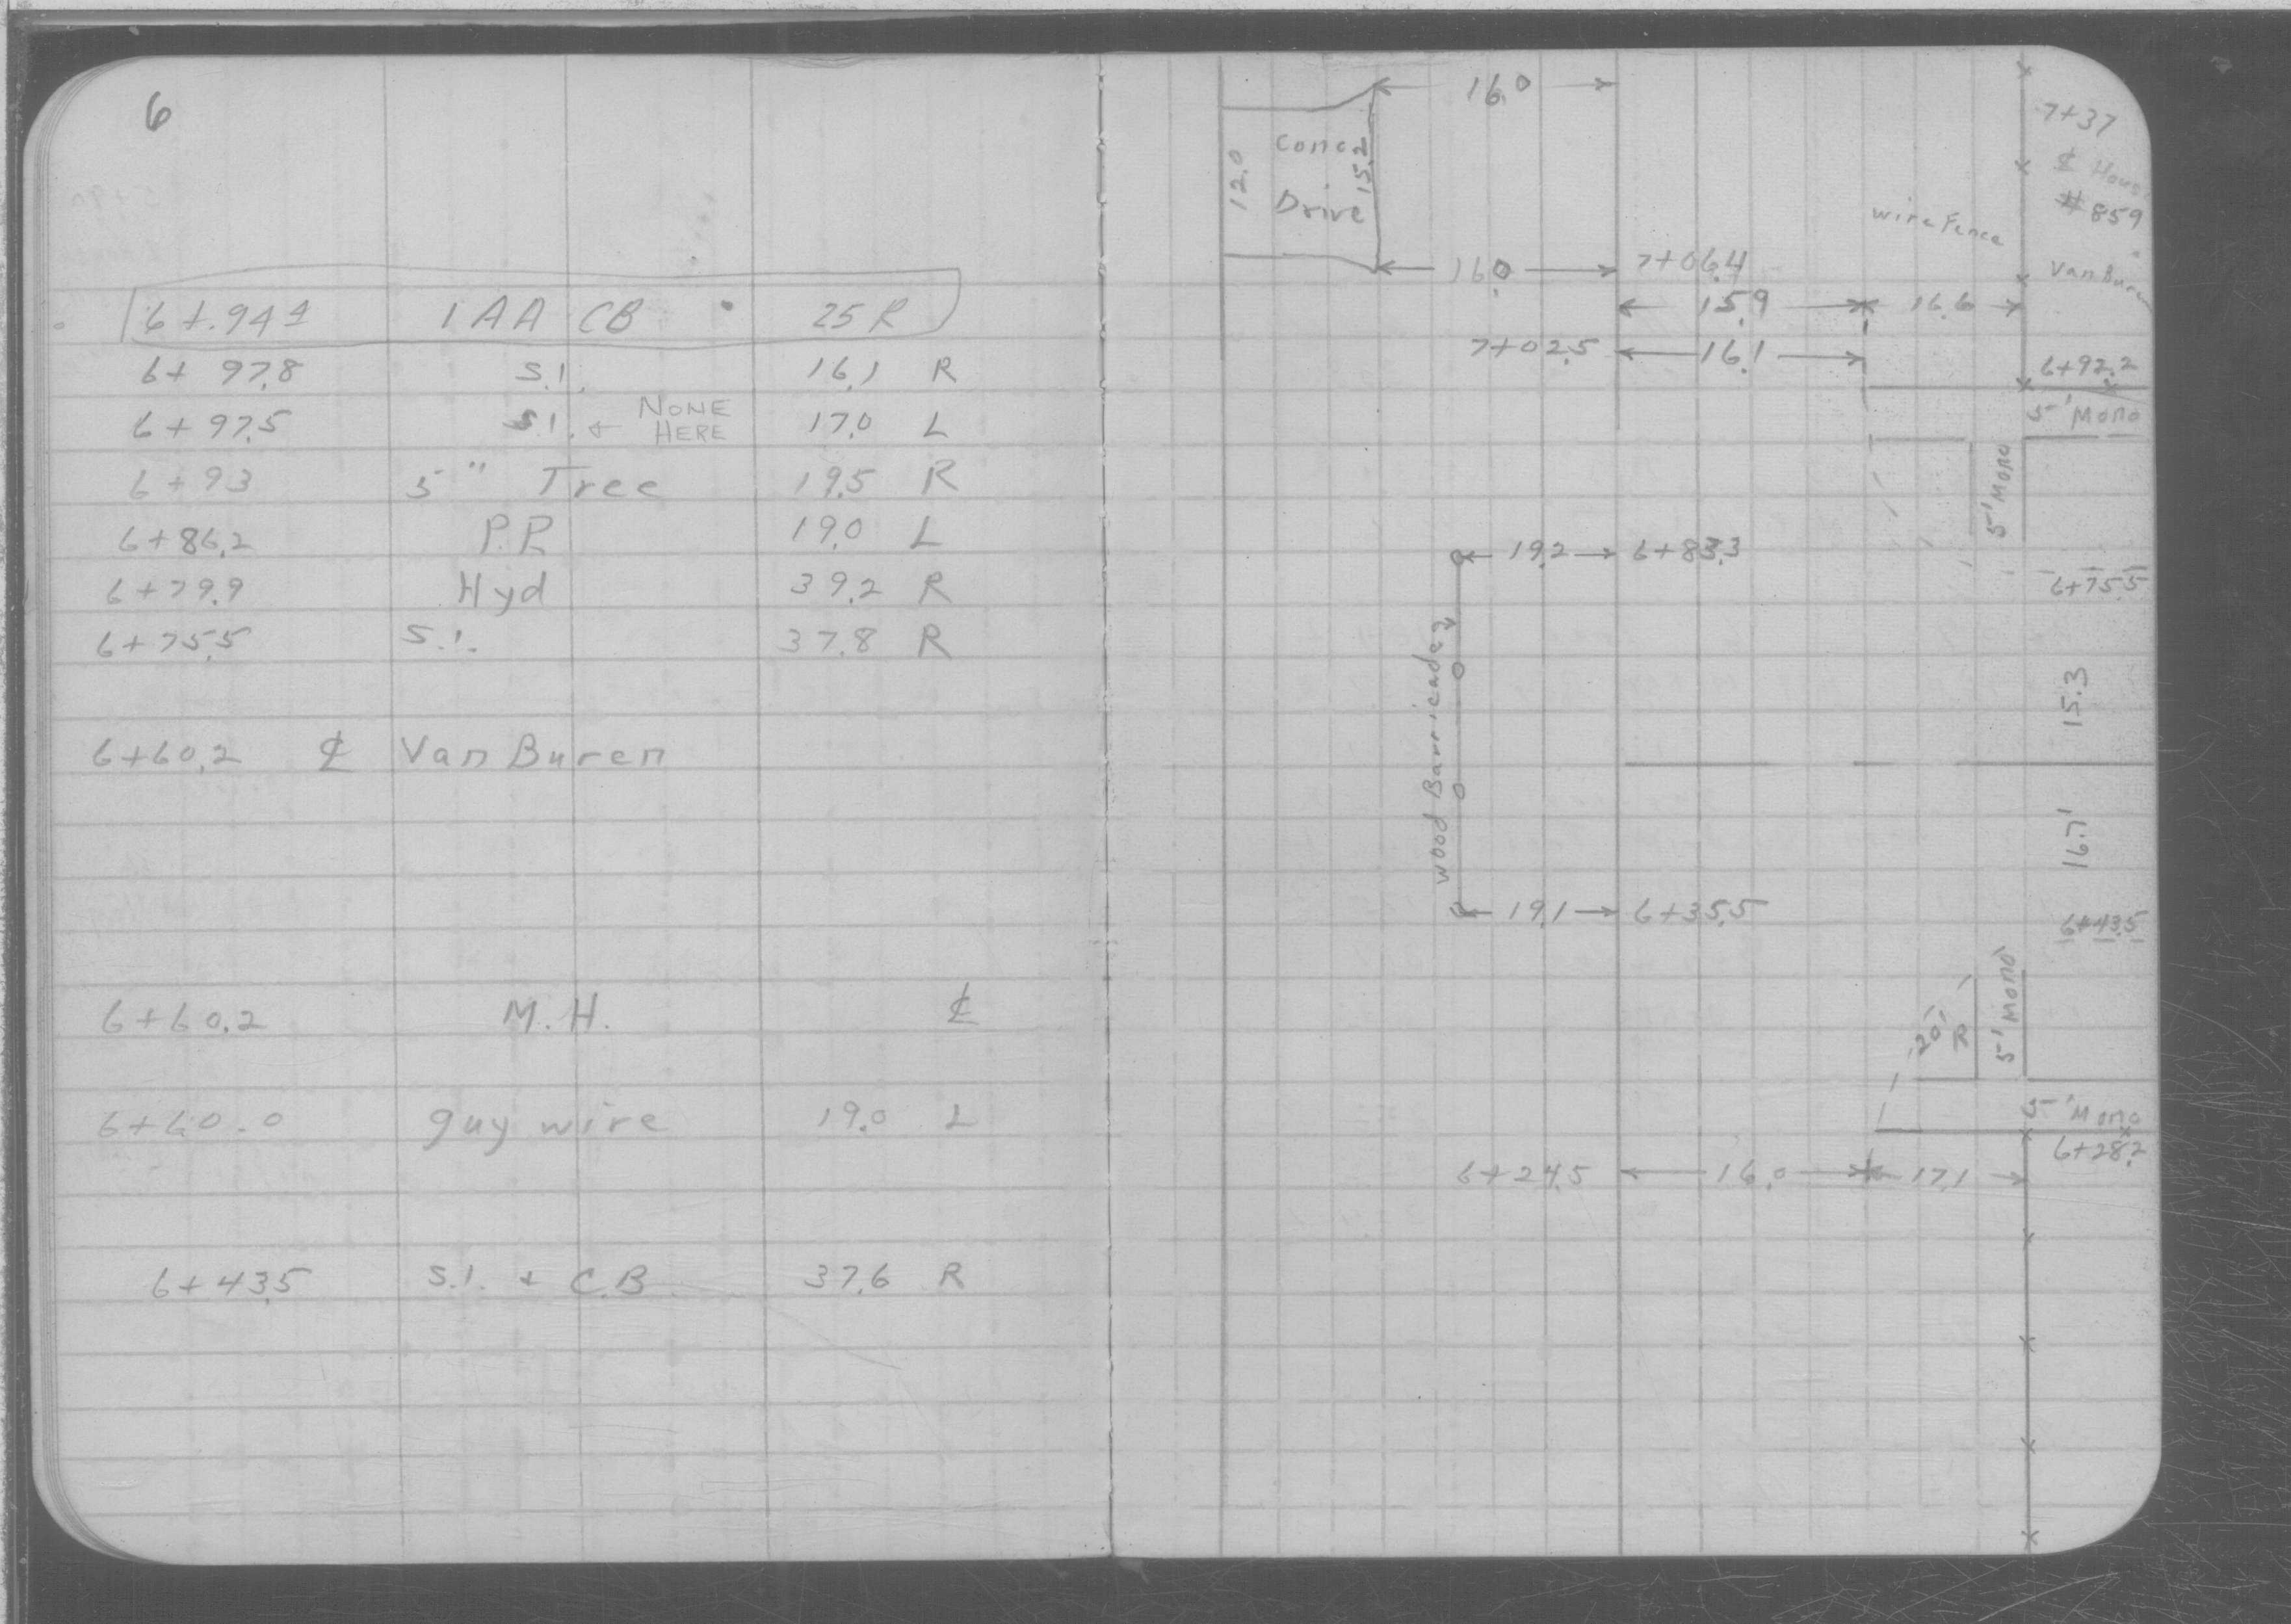 6
6+94± 1AA CB 25 R
6+97.8 S.I. 16.1 R
6+97.5 S.I. & NONE HERE 17.0 L
6+93 5" Tree 19.5 R
6+86.2 P.P. 19.0 L
6+79.9 Hyd 39.2 R
6+75.5 S.I. 37.8 R
6+60.2 ℄ Van Buren
6+60.2 M.H. ℄
6+60.0 guy wire 19.0 L
6+43.5 S.I. & C.B 37.6 R
16.0
7+37
Conc
Drive
12.0
15.2
℄ House
#859
Van Buren
wire Fence
16.0 7+06.4
15.9 16.6
7+02.5 16.1
6+92.2
5' Mono
5' Mono
19.2 6+83.3
6+75.5
Wood Barricade
15.3
16.7'
19.1 6+35.5
6+43.5
20' R
5' Mono
5' Mono
6+28.2
6+24.5 16.0 17.1